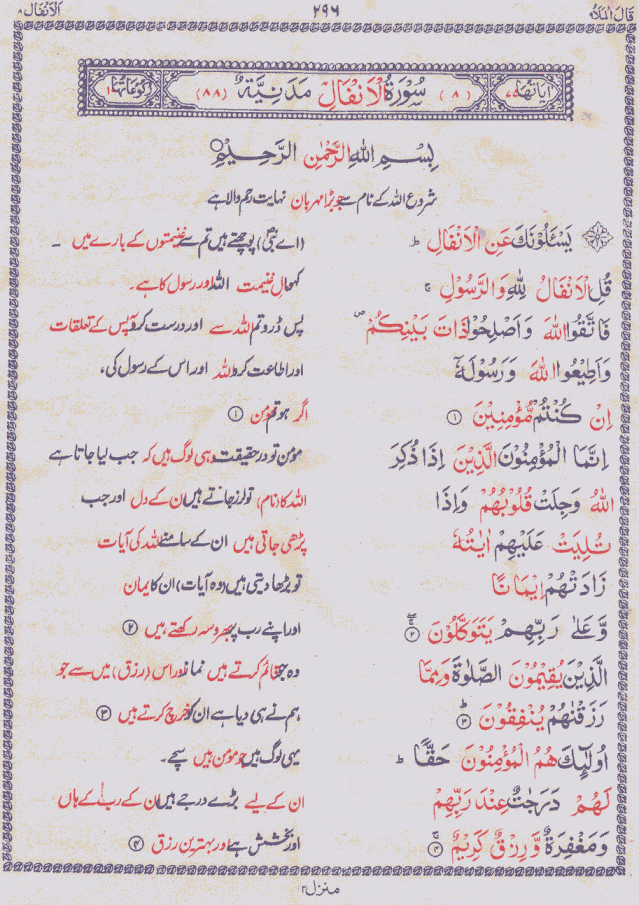 قَالَ الْمَلَاُ ٩ ٢٩٦ اَلْاَنْفَال ٨
اٰيَاتُهَا ٧٥ (٨) سُوْرَةُ الْاَنْفَالِ مَدَنِيَّةٌ (٨٨) رُكُوْعَاتُهَا ١٠
بِسْمِ اللهِ الرَّحْمٰنِ الرَّحِيْمِ
شروع اللہ کے نام سے جو بڑا مہربان نہایت رحم والا ہے
يَسْـَٔلُوْنَكَ عَنِ الْاَنْفَالِ ؕ (اے نبیؐ) پوچھتے ہیں تم سے غنیمتوں کے بارے میں ۔
قُلِ الْاَنْفَالُ لِلّٰهِ وَالرَّسُوْلِ ۚ کہو مال غنیمت اللہ اور رسول کا ہے ۔
فَاتَّقُوا اللهَ وَاَصْلِحُوْا ذَاتَ بَيْنِكُمْ ۪ پس ڈرو تم اللہ سے اور درست کرو آپس کے تعلقات
وَاَطِيْعُوا اللهَ وَرَسُوْلَهٗٓ اور اطاعت کرو اللہ اور اس کے رسول کی،
اِنْ كُنْتُمْ مُّؤْمِنِيْنَ ① اگر ہو تم مؤمن ①
اِنَّمَا الْمُؤْمِنُوْنَ الَّذِيْنَ اِذَا ذُكِرَ مؤمن تو در حقیقت وہی لوگ ہیں کہ جب لیا جاتا ہے
اللهُ وَجِلَتْ قُلُوْبُهُمْ وَاِذَا اللہ کا (نام) تو لرز جاتے ہیں ان کے دل اور جب
تُلِيَتْ عَلَيْهِمْ اٰيٰتُهٗ پڑھی جاتی ہیں ان کے سامنے اللہ کی آیات
زَادَتْهُمْ اِيْمَانًا تو بڑھا دیتی ہیں (وہ آیات) ان کا ایمان
وَّعَلٰى رَبِّهِمْ يَتَوَكَّلُوْنَ ② اور اپنے رب پر بھروسہ رکھتے ہیں ②
الَّذِيْنَ يُقِيْمُوْنَ الصَّلٰوةَ وَمِمَّا وہ جو قائم کرتے ہیں نماز اور اس (رزق) میں سے جو
رَزَقْنٰهُمْ يُنْفِقُوْنَ ③ ہم نے ہی دیا ہے ان کو خرچ کرتے ہیں ③
اُولٰٓئِكَ هُمُ الْمُؤْمِنُوْنَ حَقًّا ؕ یہی لوگ ہیں جو مؤمن ہیں سچے ۔
لَهُمْ دَرَجٰتٌ عِنْدَ رَبِّهِمْ ان کے لیے بڑے درجے ہیں ان کے رب کے ہاں
وَمَغْفِرَةٌ وَّرِزْقٌ كَرِيْمٌ ④ اور بخشش ہے اور بہترین رزق ④
منزل ٢